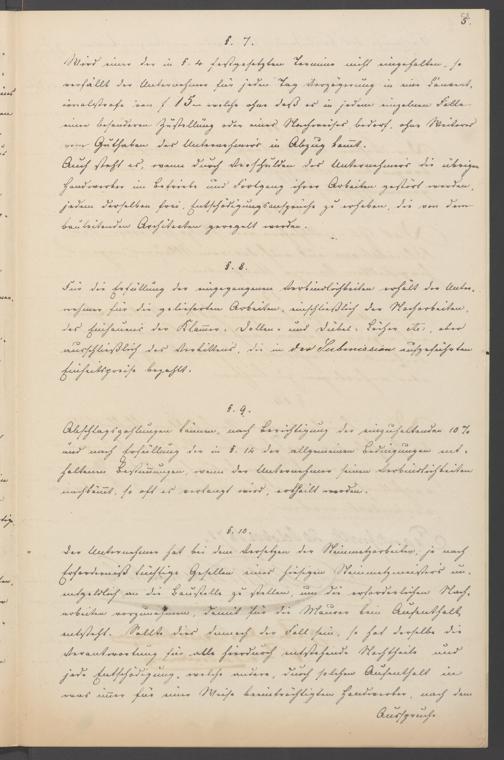 5.
§. 7.
Wird einer der in §. 4 festgesetzten Termine nicht eingehalten, so
verfällt der Unternehmer für jeden Tag Verzögerung in eine Convent-
ionalstrafe von f 15.— welche ohne daß es in jedem einzelnen Falle
einer besonderen Zustellung oder eines Nachweises bedarf, ohne Weiteres
vom Guthaben des Unternehmers in Abzug kommt.
Auch steht es, wenn durch Verschulden des Unternehmers die übrigen
Handwerker im Betriebe und Fortgang ihrer Arbeiten gestört werden,
jedem derselben frei, Entschädigungsansprüche zu erheben, die von dem
bauleitenden Architecten geregelt werden.
§. 8.
Für die Erfüllung der eingegangenen Verbindlichkeiten erhält der Unter-
nehmer für die gelieferten Arbeiten, einschließlich der Nacharbeiten,
des Einhauens der Klammer-, Dollen- und Dübel-Löcher etc., aber
ausschließlich des Versetzens, die in der Submission aufgeführten
Einheitspreise bezahlt.
§. 9.
Abschlagszahlungen können, nach Berichtigung der einzuhaltenden 10 %
und nach Erfüllung der in §. 14 der allgemeinen Bedingungen ent-
haltenen Bestimmungen, wenn der Unternehmer seinen Verbindlichkeiten
nachkommt, so oft es verlangt wird, ertheilt werden.
§. 10.
Der Unternehmer hat bei dem Versetzen der Steinmetzarbeiten, je nach
Erforderniß tüchtige Gesellen eines hiesigen Steinmetzmeisters un-
entgeldlich an die Baustelle zu stellen, um die erforderlichen Nach-
arbeiten vorzunehmen, damit für die Maurer kein Aufenthalt
entsteht. Sollte dies dennoch der Fall sein, so hat derselbe die
Verantwortung für alle hierdurch entstehende Nachtheile und
jede Entschädigung, welche andere, durch solchen Aufenthalt in
was immer für einer Weise beeinträchtigten Handwerker, nach dem
Ausspruche